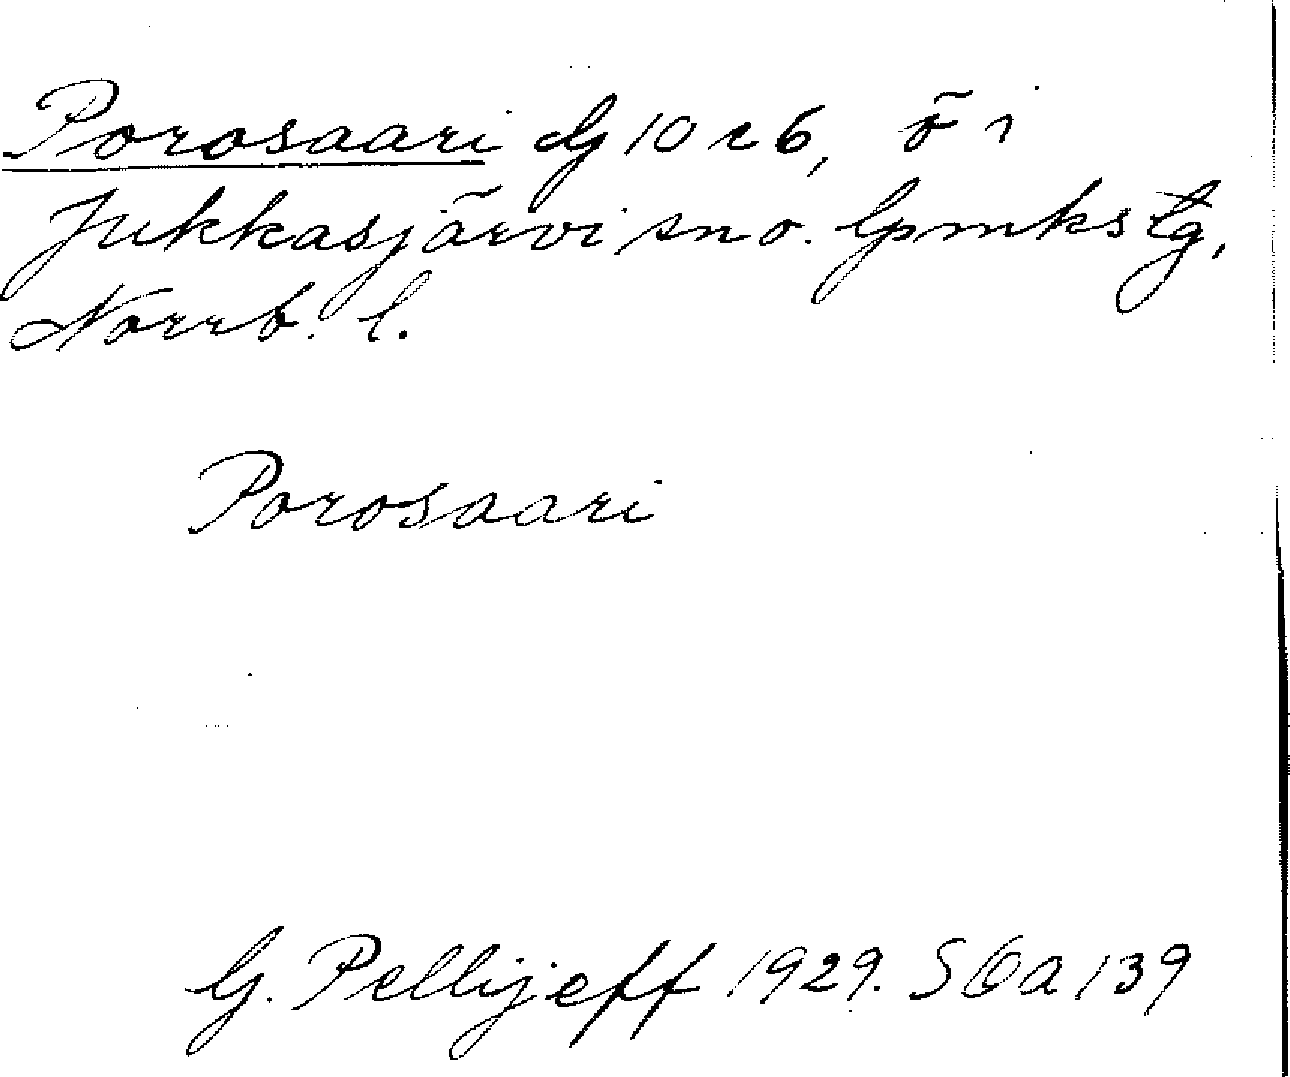 Porosaari dg 10 c 6, ö i
Jukkasjärvi sn o. lpmkstg,
Norrb. l.
Porosaari
G. Pellijeff 1929. SOa 139